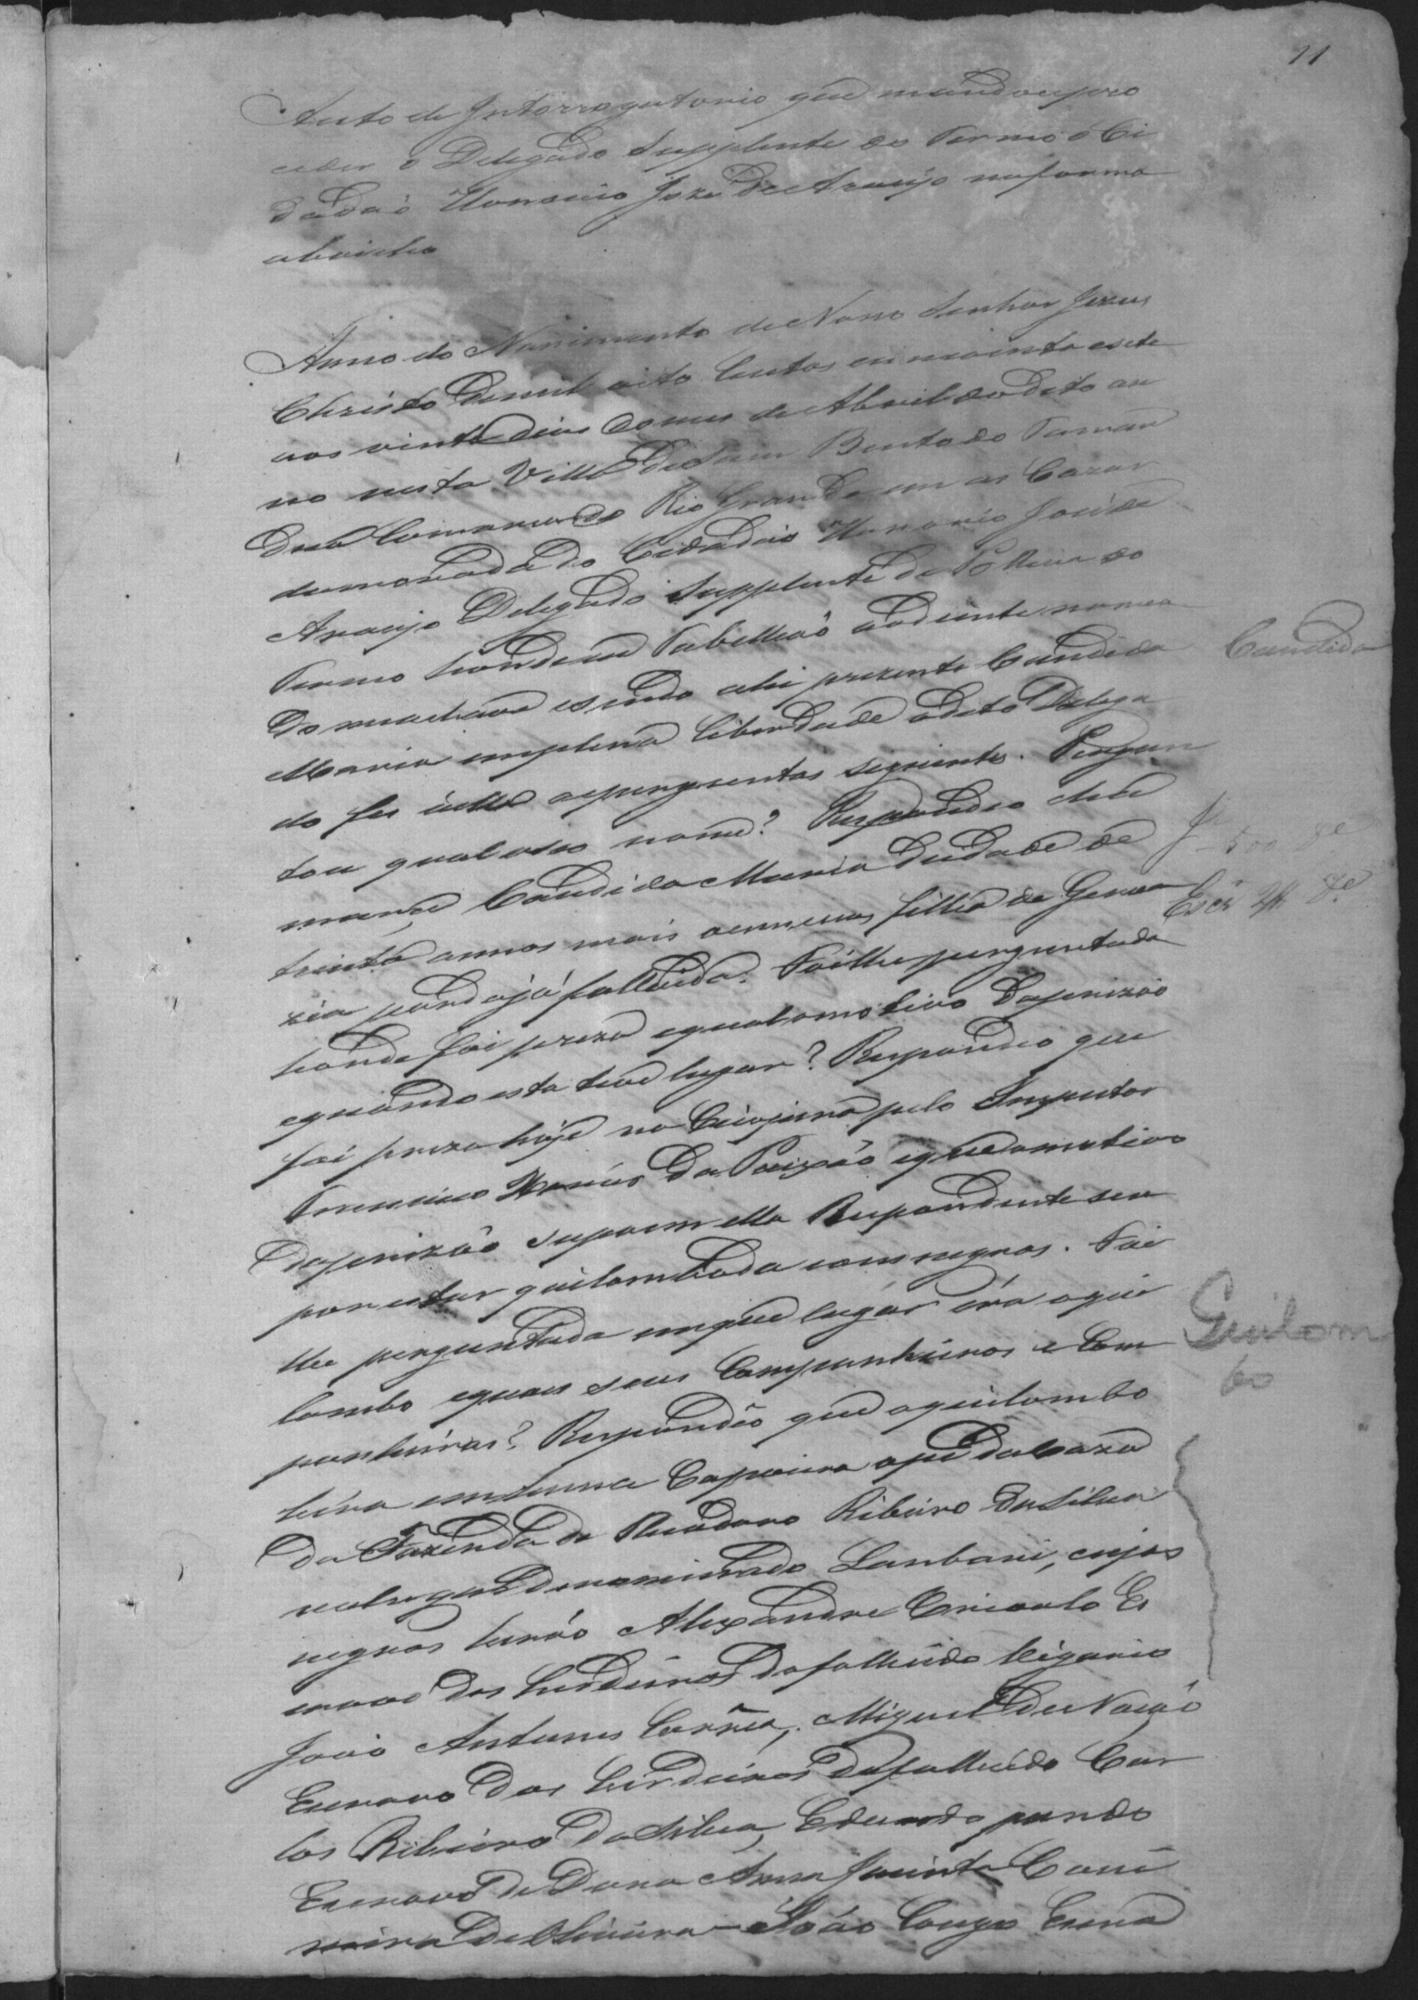 11
Auto de Interrogatorio que mandou pro
ceder o Delegado Supplente do Termo o Ci
dadaõ Honorio Joze de Araujo na forma
abaixo
Anno do Nascimento de Nosso Senhor Jezus
Christo de mil oito centos cincoenta e sete
aos vinte dias do mes de Abril do dito an
no nesta Villa de Sam Bento do Taman
dua Comarca do Rio Grande em as Cazas
de morada do Cidadaõ Honorio José de
Araujo Delegado Supplente de Policia do
Termo honde eu Tabelliaõ adiante nomea
do me achava e sendo ahi prezente Candida
Candida
Maria em plena liberdade o dito Delega
do fes á ella as perguntas seguintes. Pergun
tou qual o seo nome? Respondeo cha
mar-se Candida Maria de idade de
trinta annos mais ou menos filha de
parda já fallecida. Foi lhe perguntada
honde foi preza e qual o motivo da prizaõ
e quando esta teve lugar? Respondeo que
foi preza hoje no pelo Inspector
da Paixaõ e que o motivo
da prizaõ supoem ella Respondente ser
por estar quilombada com negros. Foi
lhe perguntada em que lugar éra o qui
Guilom
bo
lombo e quaes seus Companheiros e Com
panheiras? Respondêo que o quilombo
héra em huma Capoeira ao pé da Caza
da Fazenda de Ribeiro da Silva
no lugar denominado cujos
negros heraõ Alexandre Crioulo Es
cravo dos herdeiros do fallecido Vigario
João Antunes Corrêa, Miguel de Nação
Escravo dos herdeiros do fallecido Car
los Ribeiro da Silva, Eduardo pardo
Escravo de Dona Anna Jacinta
de Oliveira – João Congo Escra